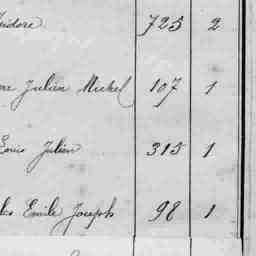 Isidore 725 2
Julien Michel 107 1
Louis Julien 315 1
Emile Joseph 98 1